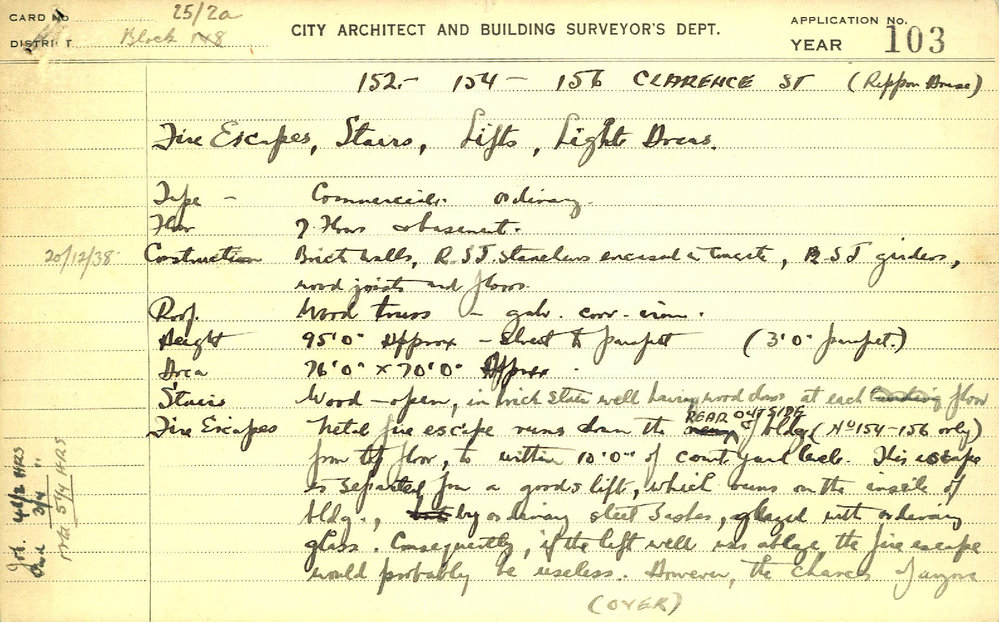 CARD No 25/2a
DISTRICT Block 148
CITY ARCHITECT AND BUILDING SURVEYOR'S DEPT.
APPLICATION No.
YEAR 103
152 - 154 - 156 CLARENCE ST (Rippon House)
Fire Escapes, Stairs, Lifts, Light Areas.
Type - Commercial. ordinary.
Floor 7 Floors & basement.
20/12/38 Construction Brick walls, R.S.J. Stanchions encased in concrete, R.S.J girders,
wood joists and floors.
Roof. Wood truss - galv. corr. iron.
Height 95'0" Approx - Street to parapet (3'0" parapet.)
Area 76'0" x 70'0" Approx.
Stairs Wood - open, in brick stair well having wood doors at each landing floor
Fire Escapes Metal fire escape runs down the REAR OUTSIDE of bldg (No 154-156 only)
from top floor, to within 10'0" of court yard level. This escape
is separated from a goods lift, which runs on the inside of
bldg., but by ordinary steel sashes, glazed with ordinary
glass. Consequently, if the lift well was ablaze, the fire escape
would probably be useless. However, the chances of anyone
(OVER)
Job. 4 1/2 HRS
3/4 "
Total 5 1/4 HRS